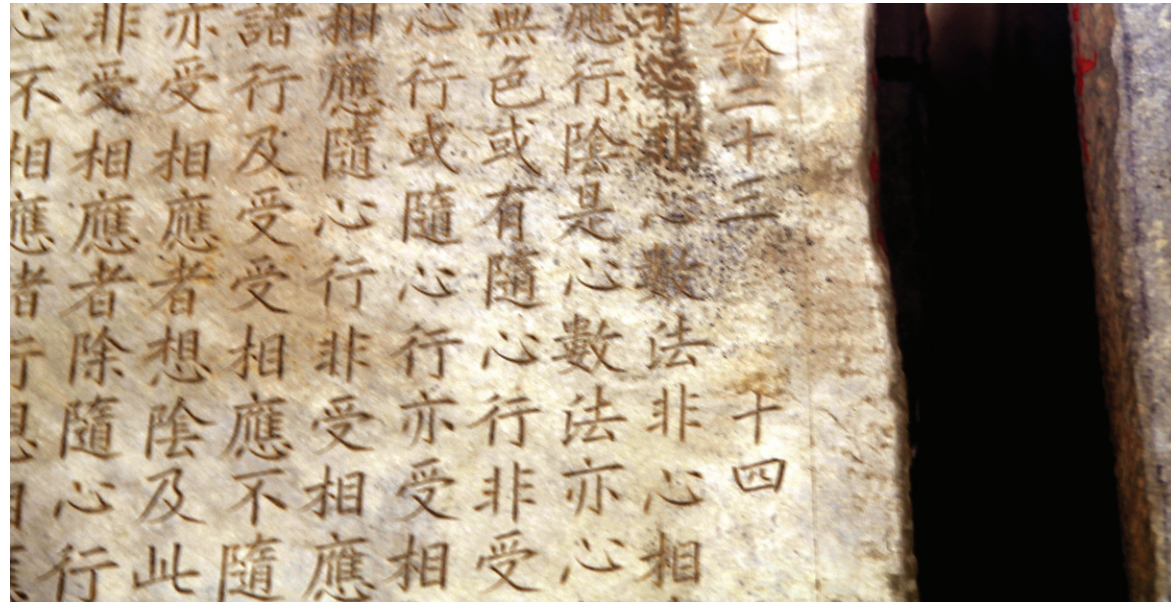 論二十三 十四
非心數法非心相
應行陰是心數法亦心
無色或有隨心行非受
心行或隨心行亦受相
相應隨心行非受相應
諸行及受受相應不隨
亦受相應者想陰及此
非受相應者除隨心行
心不相應者行想相應